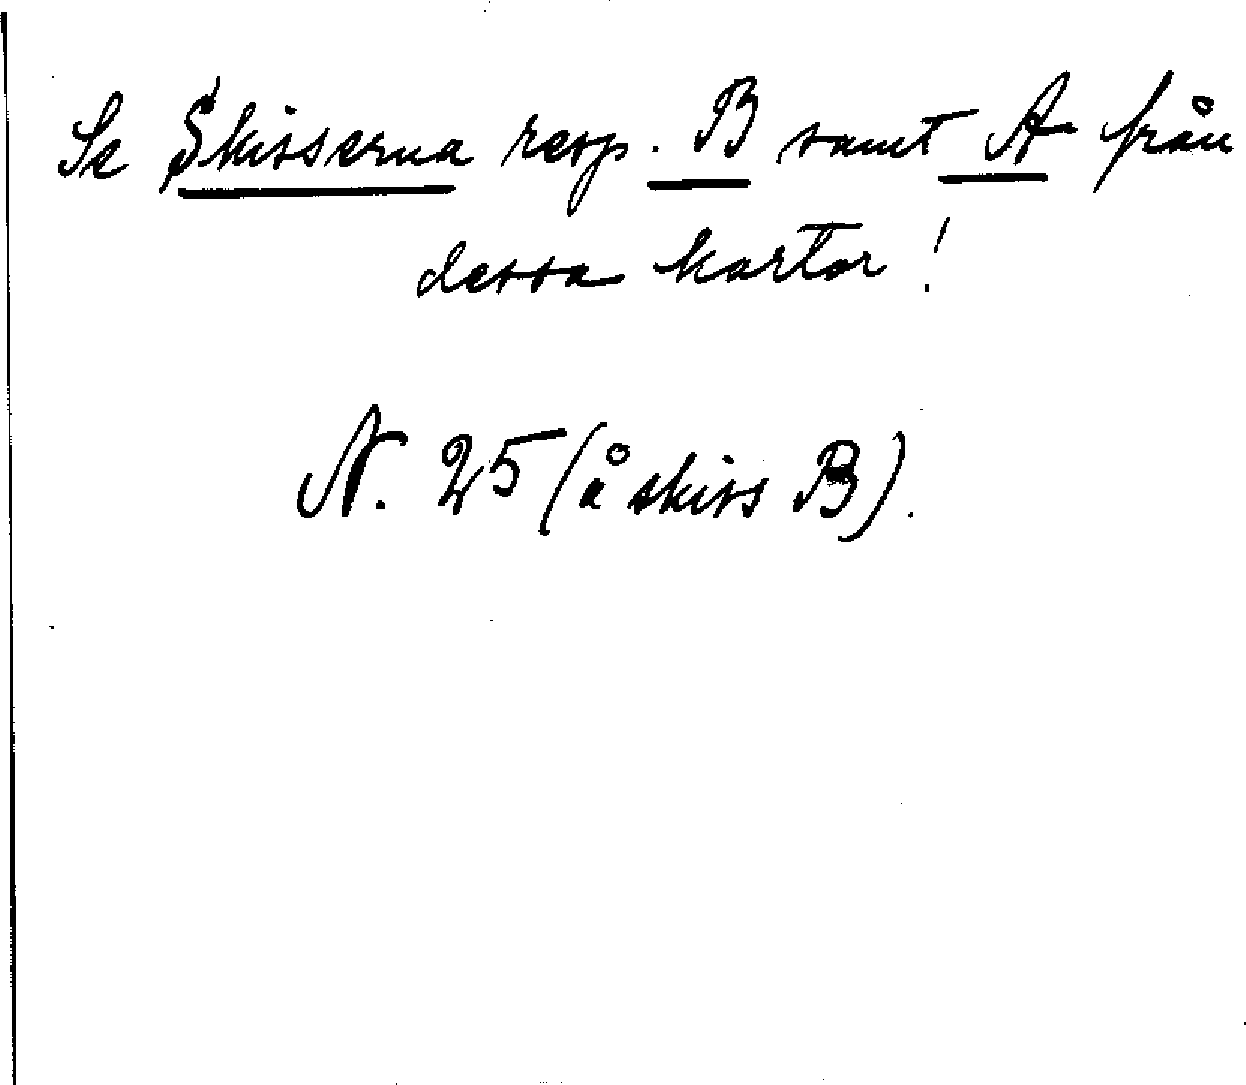 Se Skisserna resp. B samt A från
dessa kartor!
N. 25 (å skiss B).